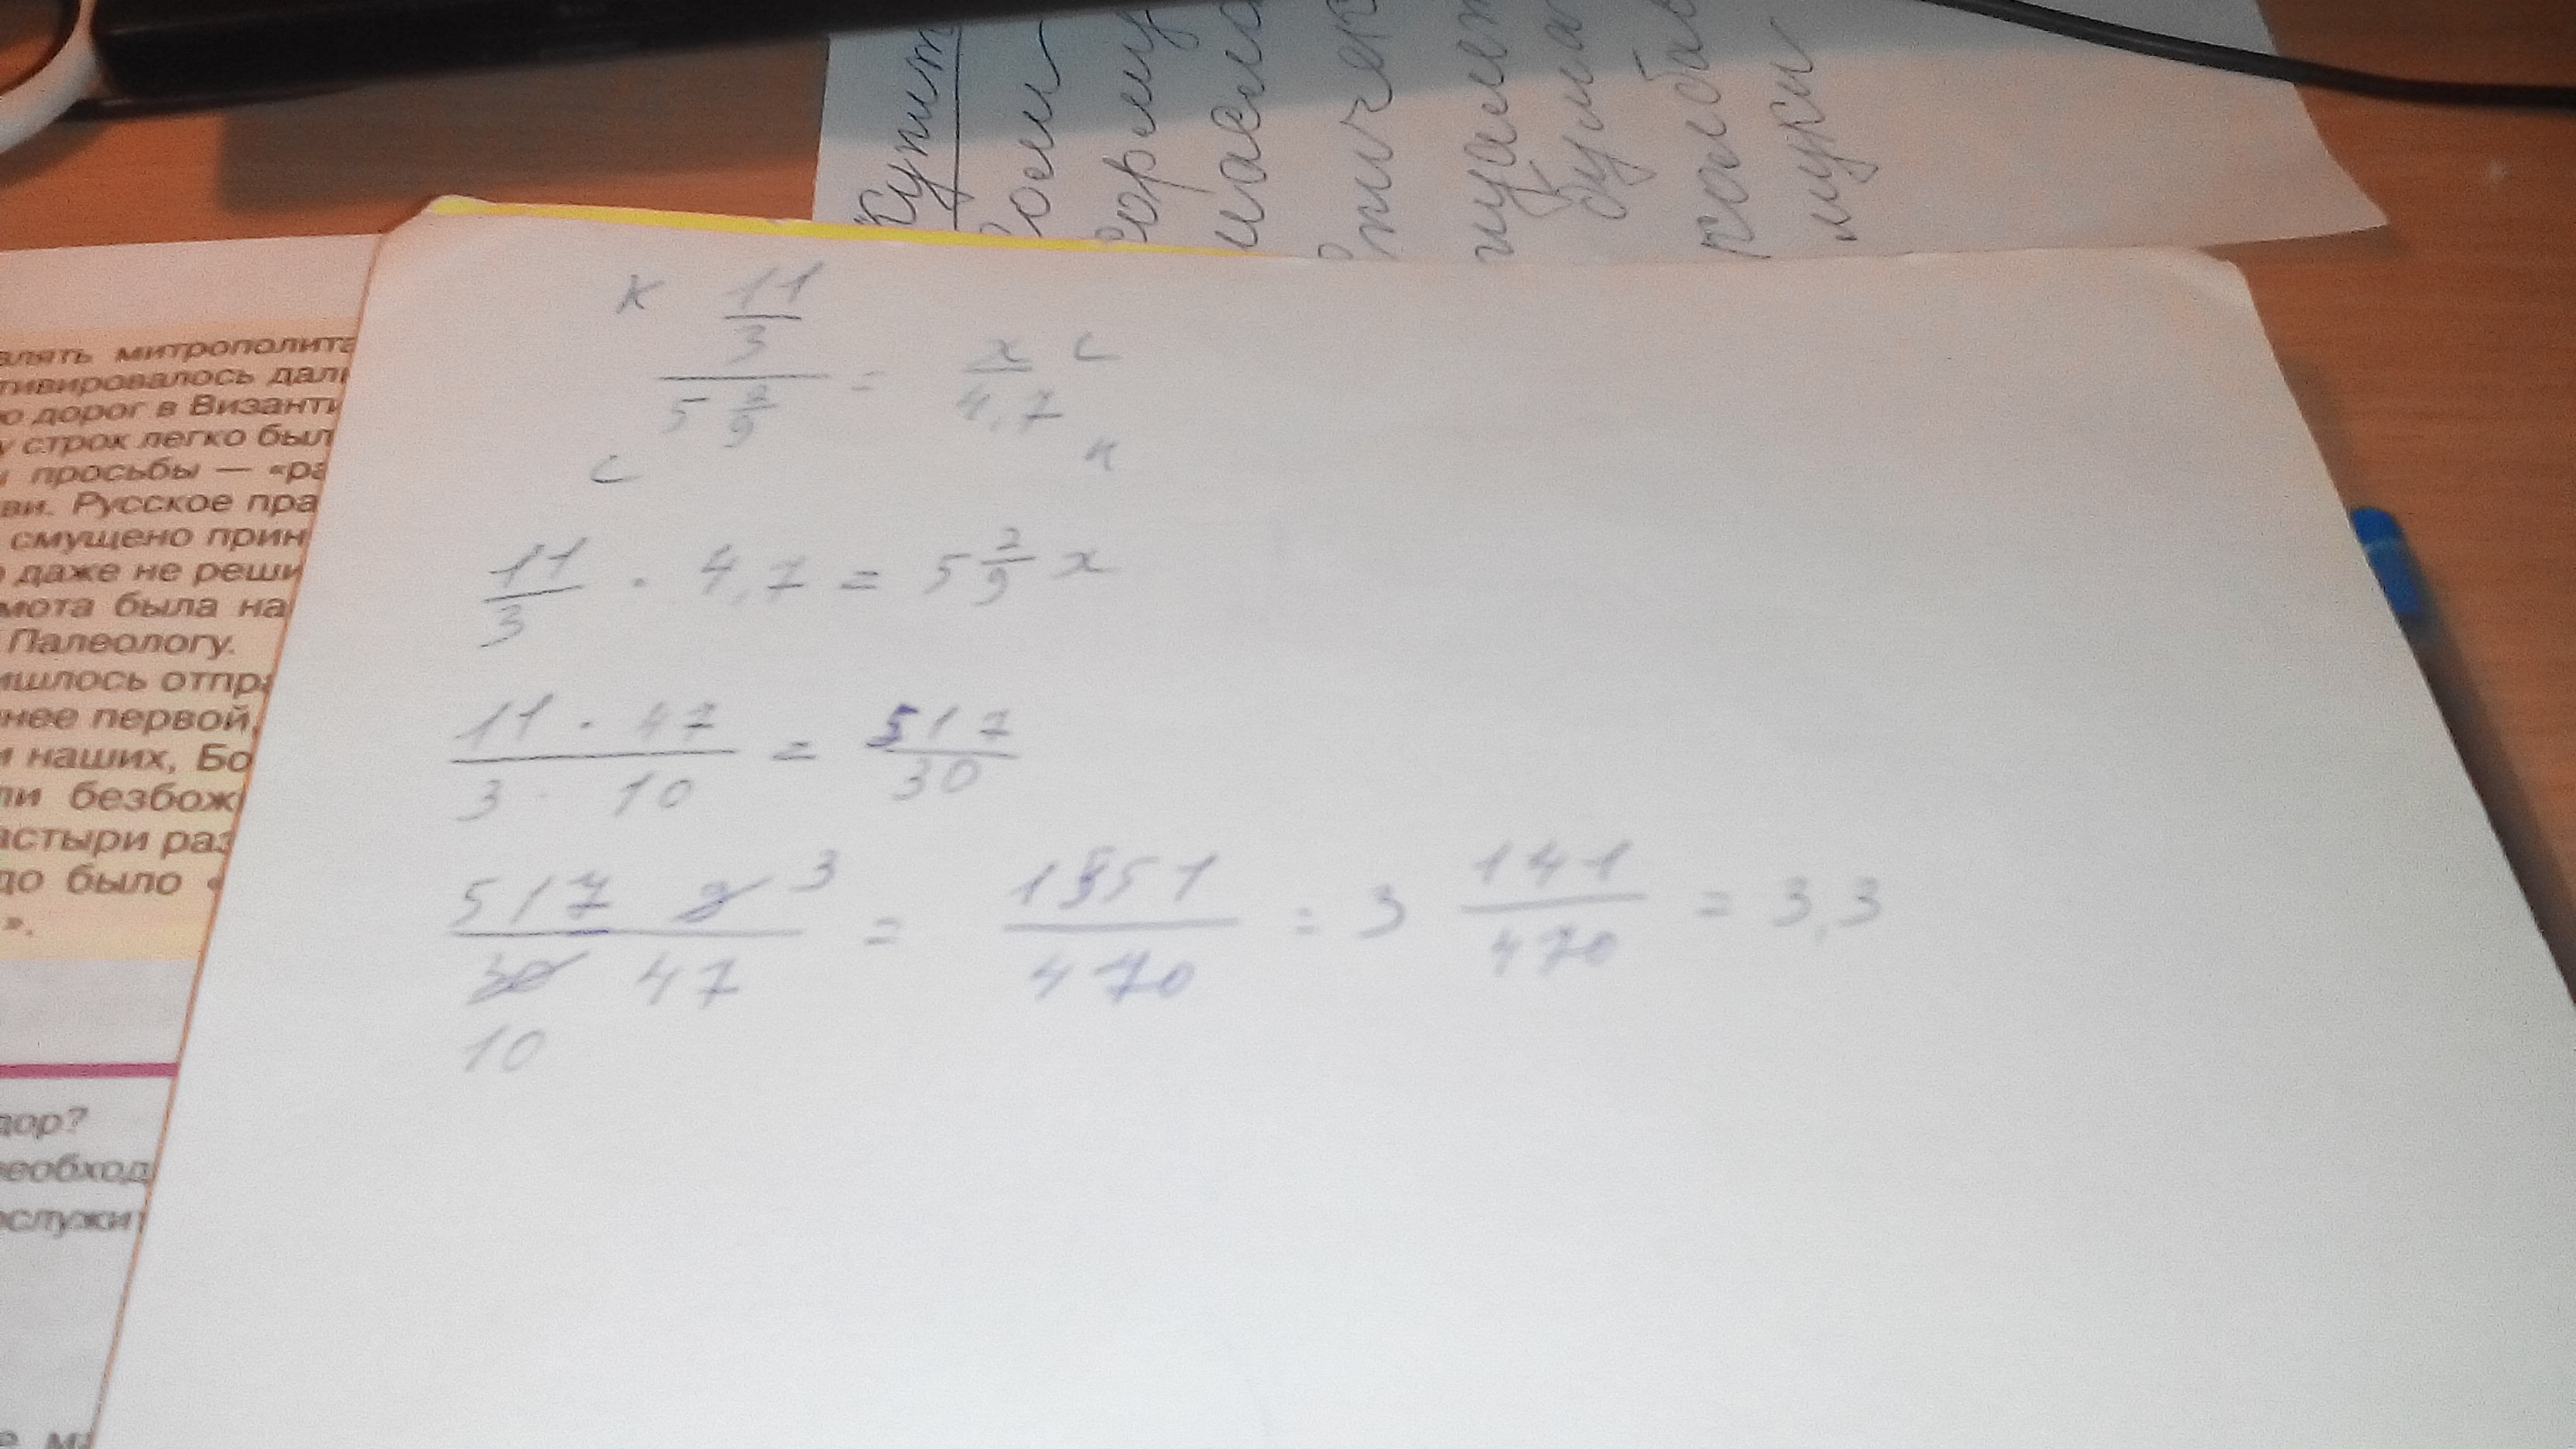 Купит
Соли
масла
муки
влять митрополита
тивировалось дал
ю дорог в Византи
у строк легко был
и просьбы — «ра
ви. Русское пра
смущено прин
даже не реши
мота была на
Палеологу.
ишлось отпра
нее первой,
и наших, Бо
ли безбож
астыри раз
до было «
».
дор?
необход
ослужи
к 11/3 / 5 2/9 = x/4,7 с
с к
11/3 · 4,7 = 5 2/9 x
11 · 47 / 3 · 10 = 517/30
517 9 3 / 30 47 = 1551/470 = 3 141/470 = 3,3
10